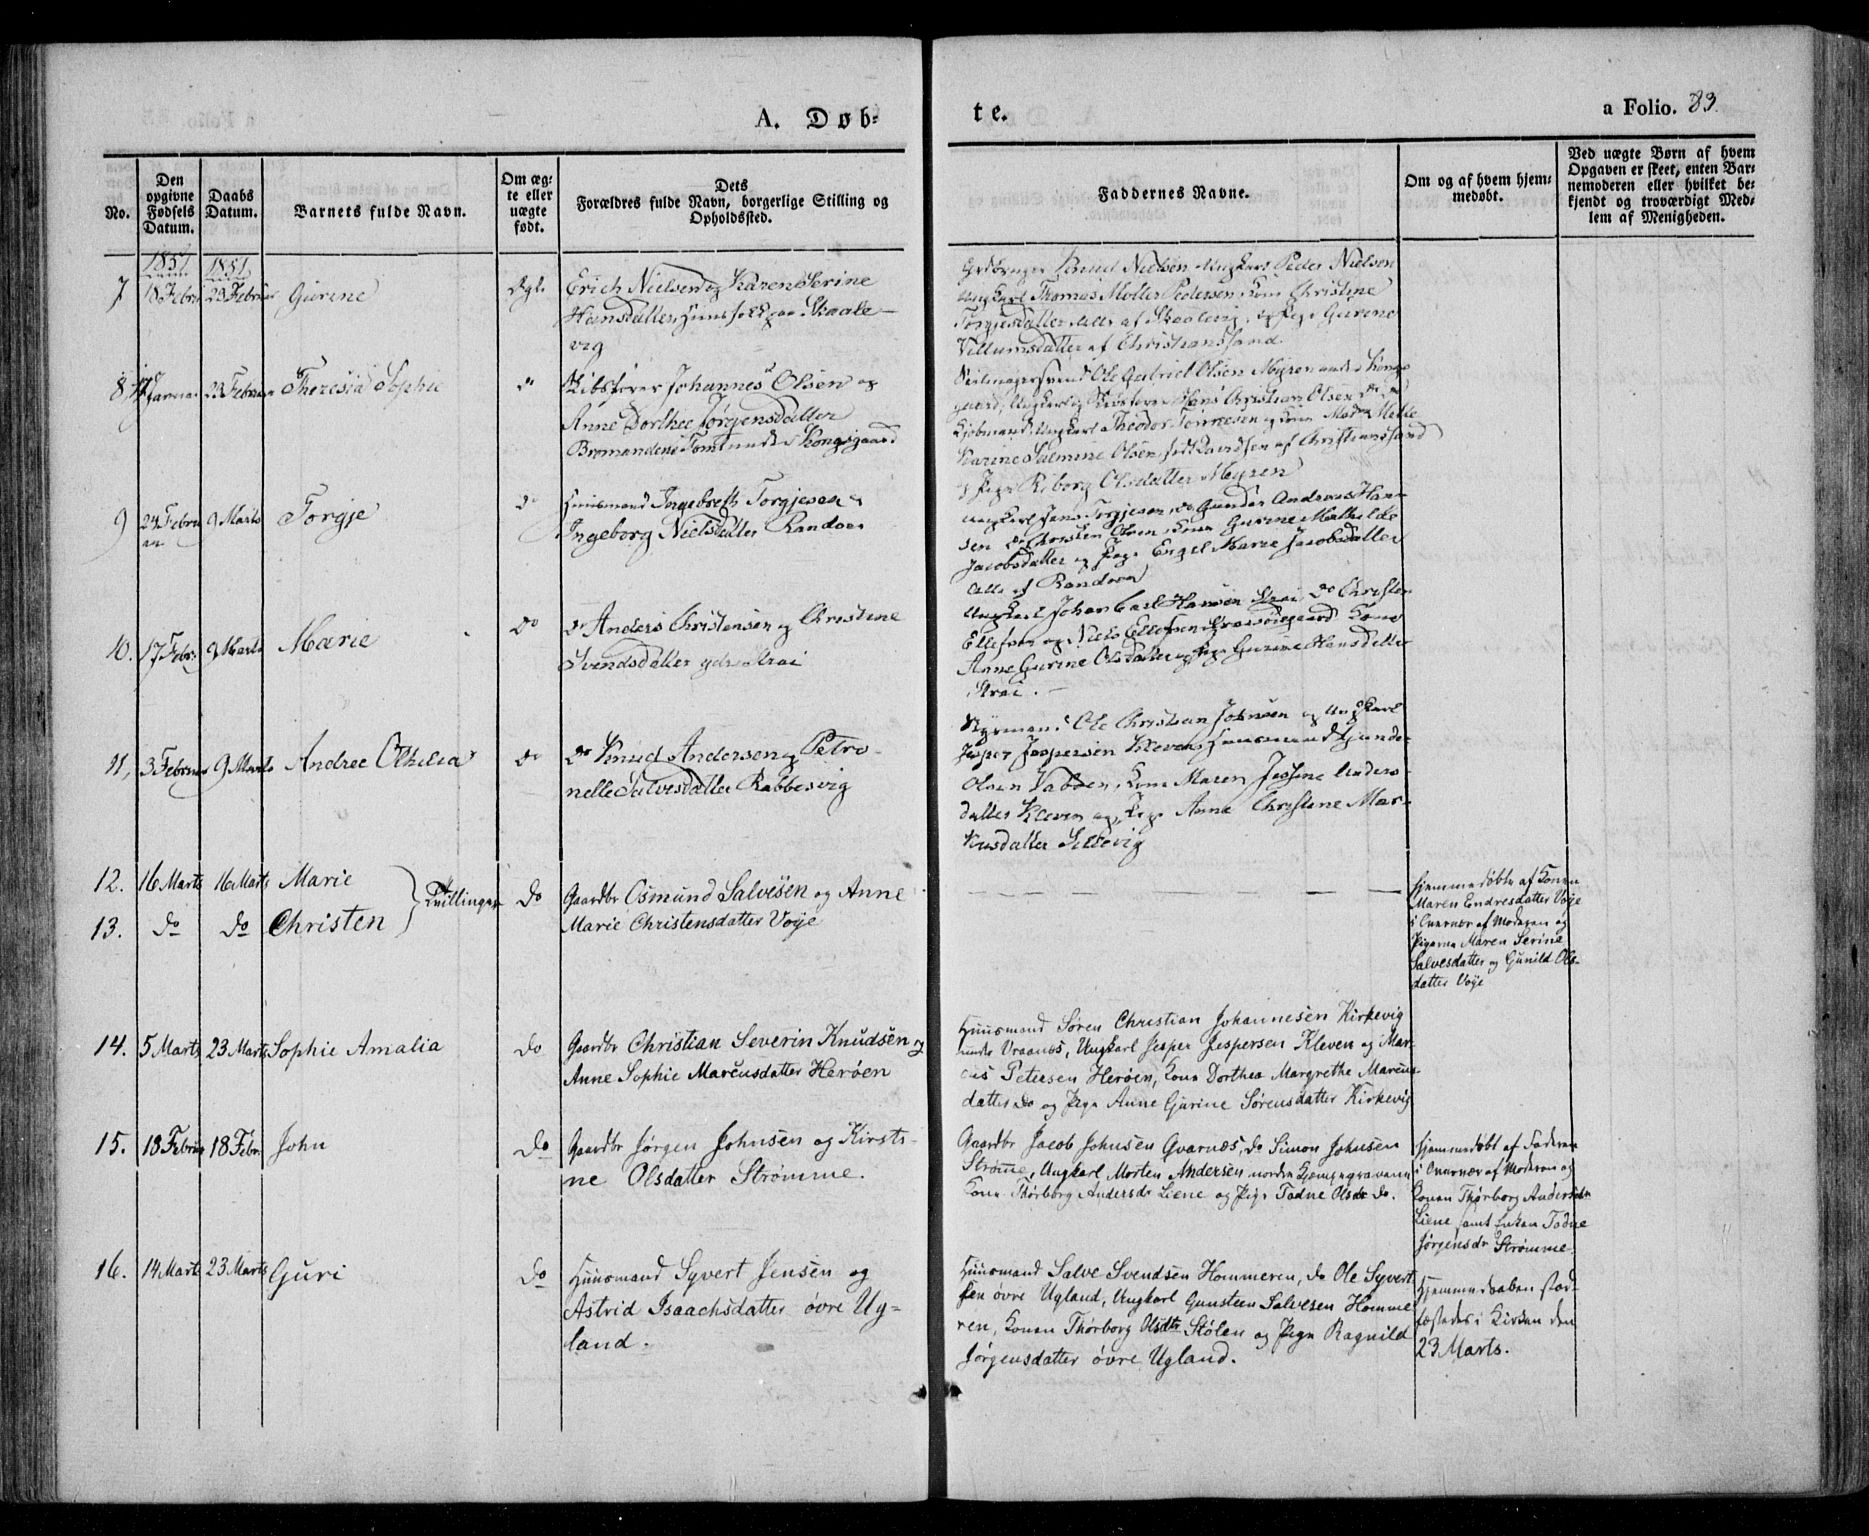 A. Døb-
te.
a Folio. 83.
No.
Den opgivne Fødsels Datum.
Daabs Datum.
Barnets fulde Navn.
Om ægte eller uægte født.
Dets
Forældres fulde Navn, borgerlige Stilling og
Opholdssted.
Faddernes Navne.
Om og af hvem hjem-
medøbt.
Ved uægte Børn af hvem
Opgaven er skeet, enten Bar-
nemoderen eller hvilket be-
kjendt og troværdigt Med-
lem af Menigheden.
1851 1851
7 18 Febru 23 Februar Gurine Ægte
Erich Nielsen og Karen Serine
Hansdatter, Huusfolk paa Skaale-
vig
Knud Nielsen Ungkarl Peder Nielsen
Ungkarl Thomas Møller Pedersen, Kone Christine
Torgjesdatter alle af Skaalevig, og Pige Gurine
Villumsdatter af Christianssand
8, 17 Januar 23 Februar Theresia Sophie "
Skibsfører Johannes Olsen og
Anne Dorthea Jørgensdatter
Bromandens Tomt under Kongsgaard
Seilmagersvend Ole Gabriel Olsen Myren under Kongs-
gaard, Ungkarl og Hans Christian Olsen do
Kjøbmand, Ungkarl Theodor Tønnesen og Kone Mad. Mette
Karine Salmine Olsen, født Davidsen af Christianssand
og Pige Riborg Olsdatter Myren
9 24 Febru
ar 9 Marts Torgje do
Huusmand Ingebreth Torgjesen &
Ingeborg Nielsdatter Randøen
Ungkarl Jens Torgjesen, do Gunder Andreas Han-
sen do Chresten Olsen, Kone Gurine Mathilde
Jacobsdatter og Pige Engel Marie Jacobsdatter
Alle af Randøen
10. 17 Febr: 9 Marts Marie do
do Anders Christensen og Christine
Svendsdatter ydre Strai
Ungkarl Johan Carl Hansen Strai, do Christen
Ellefsen og Niels Ellefsen Kone
Anne Gurine Olsdatter og Pige Gurine Hansdatter
Strai. -
11, 3 Februar 9 Marts Andree Othelia do
do Knud Andersen og Petro-
nelle Salvesdatter Rabbesvig
Styrmand Ole Christian Johnsen og Ungkarl
Jesper Jespersen Kleven, Huusmand Gunder
Olsen Vabøen, Kone Maren Jessine Anders-
datter Kleven og Pige Anne Christine Mar-
kusdatter
12. 16 Marts 16 Marts Marie
Tvillinger do
13. do do Christen
Gaardbr Osmund Salvesen og Anne
Marie Christensdatter Voje
Hjemmedøbte af Konen
Maren Endresdatter Voje
i Overvær af Moderen og
Pigerne Maren Serine
Salvesdatter og Gunild Ols-
datter Voje
14. 5 Marts 23 Marts Sophie Amalia do
Gaardbr Christian Severin Knudsen og
Anne Sophie Marcusdatter Herøen
Huusmand Søren Christian Johannesen Kirkevig
under Vraanes, Ungkarl Jesper Jespersen Kleven og Mar-
cus Petersen Herøen, Kone Dorthea Margrethe Marcus-
datter do og Pige Anne Gurine Sørensdatter Kirkevig
15. 18 Februar 18 Febr. John do
Gaardbr Jørgen Johnsen og Kirsti-
ne Olsdatter Strømme.
Gaardbr Jacob Johnsen Qvarnæs, do Simon Johnsen
Strømme, Ungkarl Morten Andersen norden
Kone Thorborg Andersdr Liene og Pige Todne Olsdr do.
Hjemmedøbt af Faderen
i Overvær af Moderen og
Konen Thorborg Andersdtr
Liene samt Enken Todne
Jørgensdr Strømme.
16. 14 Marts 23 Marts Guri do
Huusmand Syvert Jensen og
Astrid Isaachsdatter øvre Ug-
land.
Huusmand Salve Svendsen Hommeren, do Ole Syvert
sen øvre Ugland, Ungkarl Gunsteen Salvesen Homme
ren, Konen Thorborg Olsdtr Stølen og Pige Ragnild
Jørgensdatter øvre Ugland.
Hjemmedaaben stad-
fæstedes i Kirken den
23 Marts.